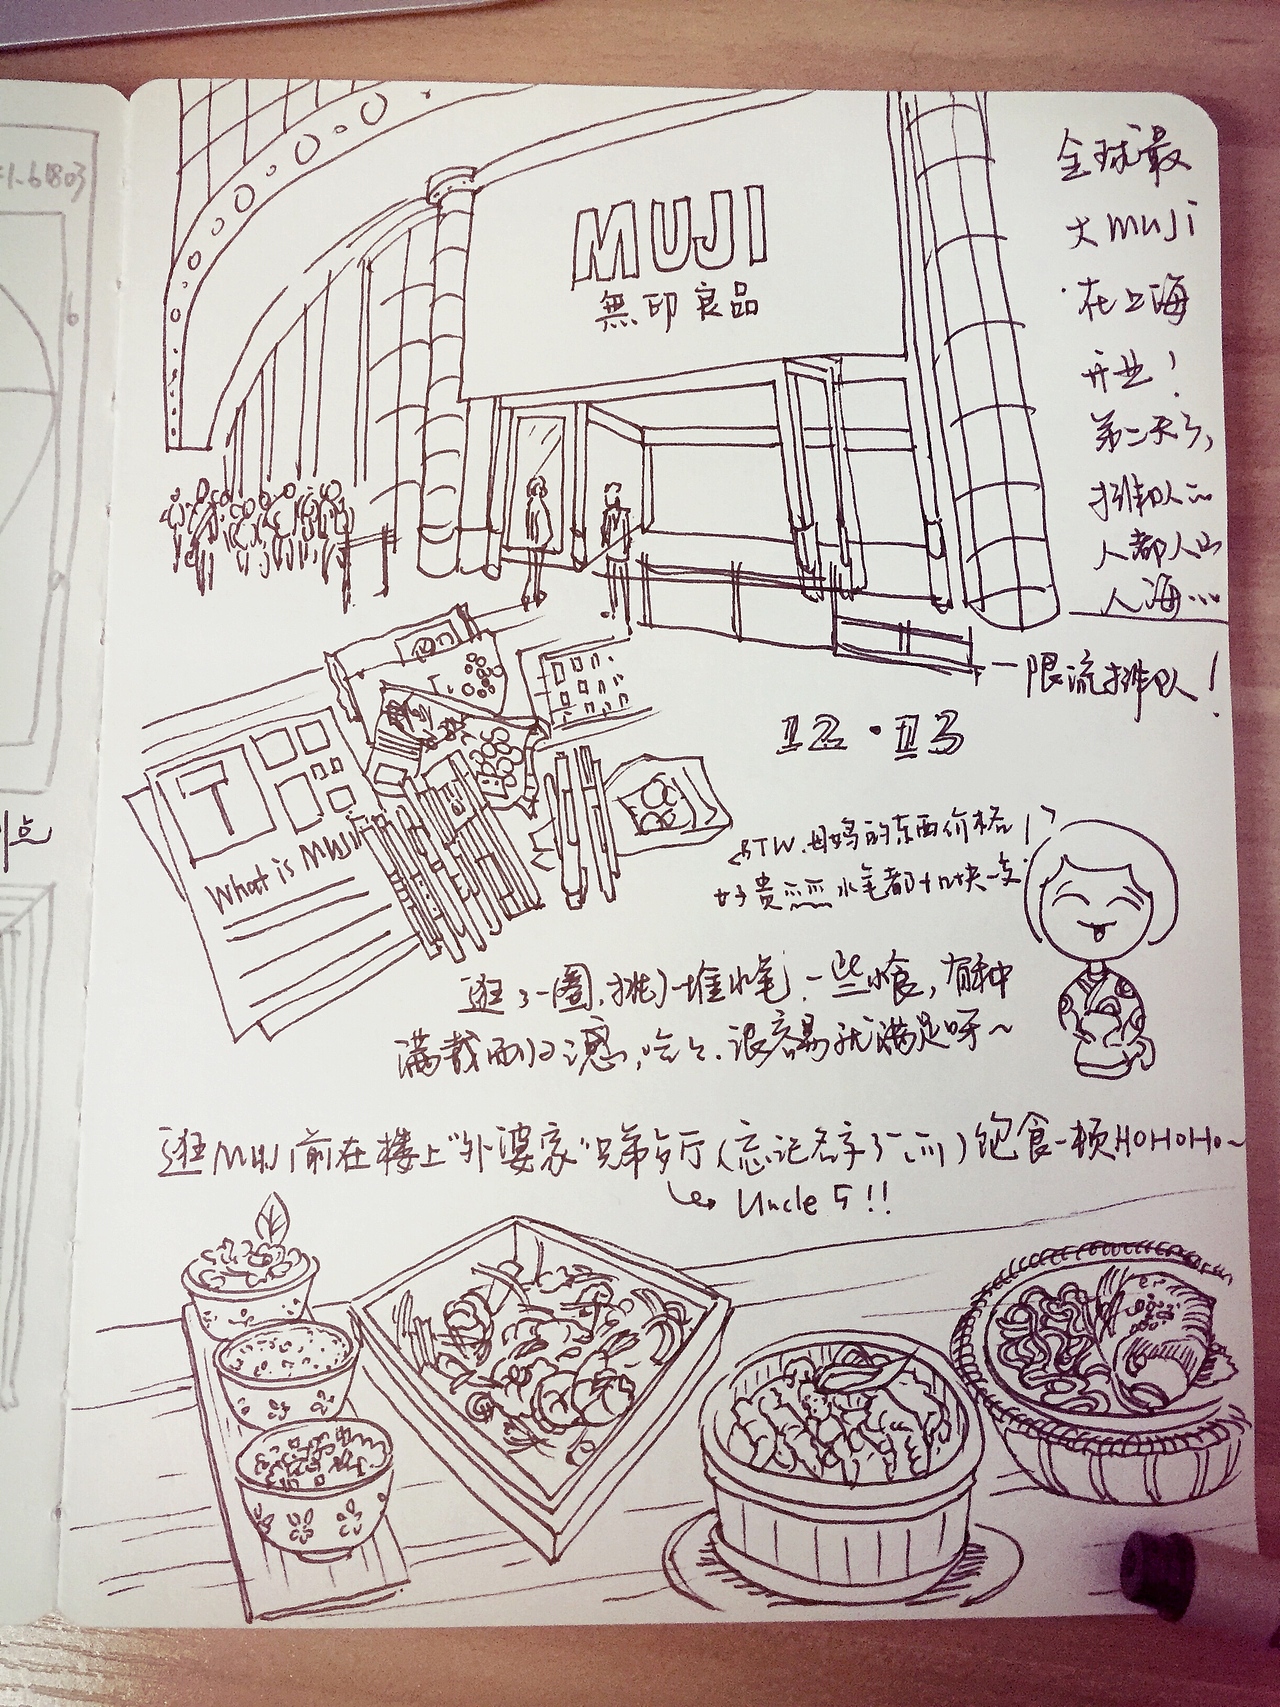 =1.61803
6
点
MUJI
無印良品
全球最
大MUJI
在上海
开业！
第二天了,
排队的
人都人山
人海…
限流排队！
12·13
T
What is MUJI
BTW.母妈的东西价格
好贵 水笔都十几块一支!
逛了一圈,挑了一堆水笔,一些小食,有种
满载而归之感,哈哈.很容易就满足呀~
逛MUJI前在楼上"外婆家"兄弟餐厅(忘记名字了)饱食一顿HOHOHO~
Uncle 5!!